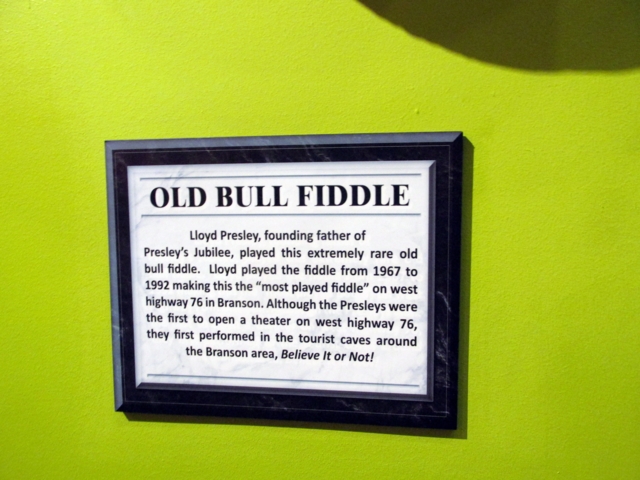 OLD BULL FIDDLE
Lloyd Presley, founding father of
Presley's Jubilee, played this extremely rare old
bull fiddle. Lloyd played the fiddle from 1967 to
1992 making this the “most played fiddle” on west
highway 76 in Branson. Although the Presleys were
the first to open a theater on west highway 76,
they first performed in the tourist caves around
the Branson area, Believe It or Not!